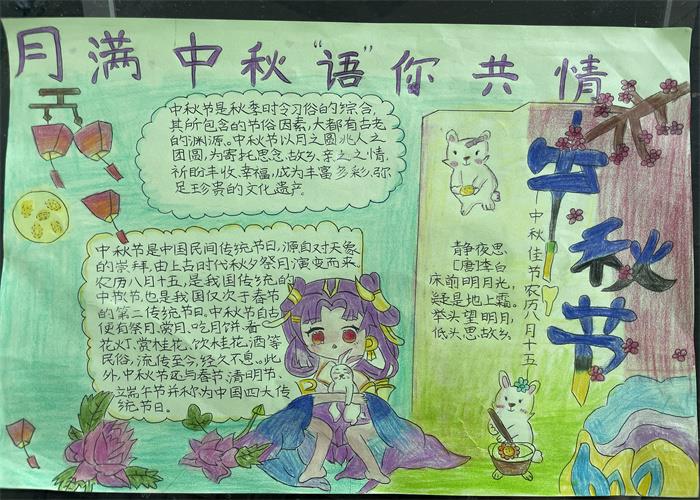 月满中秋“语”你共情
中秋节是秋季时令习俗的综合,
其所包含的节俗因素,大都有古老
的渊源。中秋节以月之圆兆人之
团圆,为寄托思念故乡、亲人之情,
祈盼丰收、幸福,成为丰富多彩、弥
足珍贵的文化遗产。
中秋节是中国民间传统节日,源自对天象
的崇拜,由上古时代秋夕祭月演变而来。
农历八月十五,是我国传统的
中秋节,也是我国仅次于春节
的第二传统节日。中秋节自古
便有祭月、赏月、吃月饼、看
花灯、赏桂花、饮桂花酒等
民俗,流传至今,经久不息。此
外,中秋节还与春节、清明节、
端午节并称为中国四大传
统节日。
静夜思
[唐]李白
床前明月光,
疑是地上霜。
举头望明月,
低头思故乡。
中秋佳节农历八月十五
中秋节